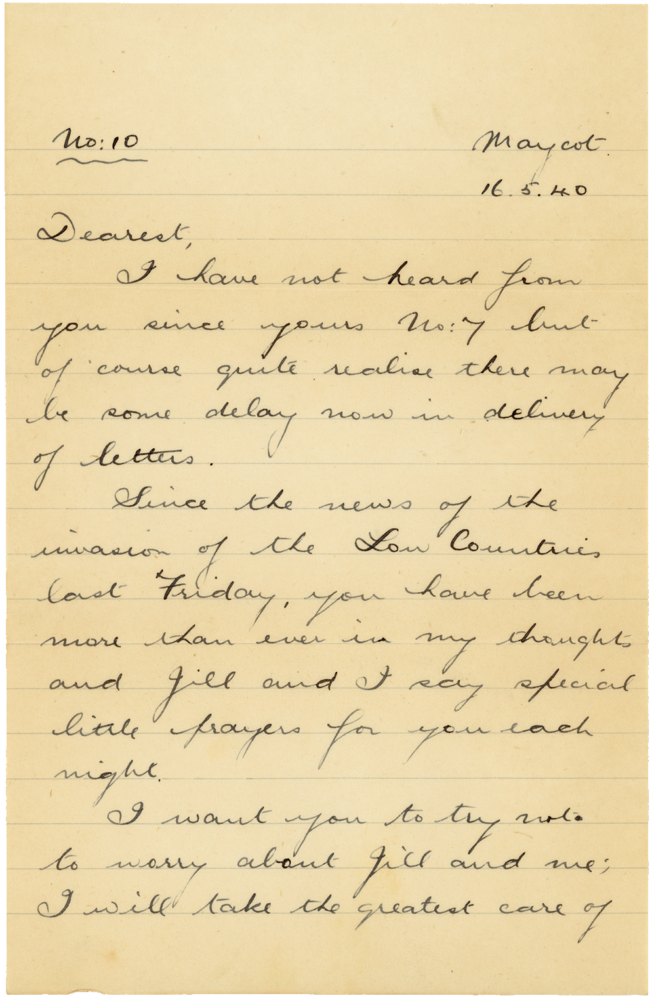 No: 10
Maycot.
16.5.40
Dearest,
I have not heard from
you since yours No: 7 but
of course quite realise there may
be some delay now in delivery
of letters.
Since the news of the
invasion of the Low Countries
last Friday, you have been
more than ever in my thoughts
and Jill and I say special
little prayers for you each
night.
I want you to try not
to worry about Jill and me;
I will take the greatest care of